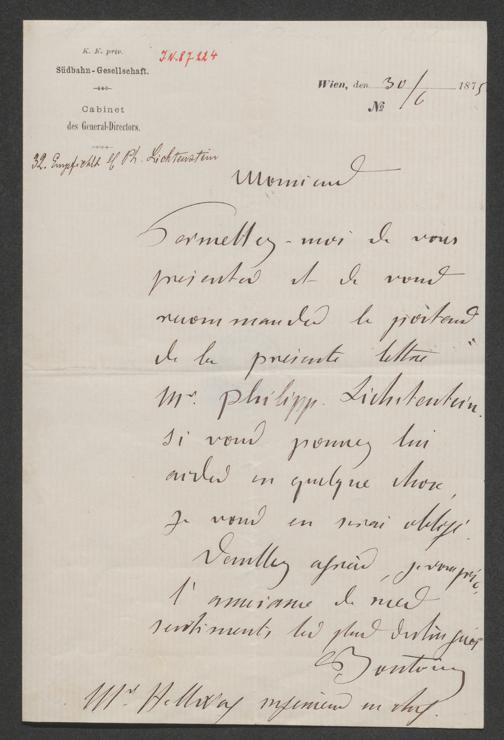 K. K. priv.
Südbahn-Gesellschaft.
Cabinet
des General-Directors.
I.N. 87.224
Wien, den 30/6 1875
№
32. Empfiehlt H Ph. Lichtenstein
Monsieur
Permettez-moi de vous
présenter et de vous
recommander le porteur
de la présente lettre
Mr. Philipp Lichtenstein.
Si vous pouvez lui
aider en quelque chose,
je vous en serai obligé.
Veuillez agréer, je vous prie,
l'assurance de mes
sentiments les plus distingués
Bontoux
Mr ingénieur en chef.